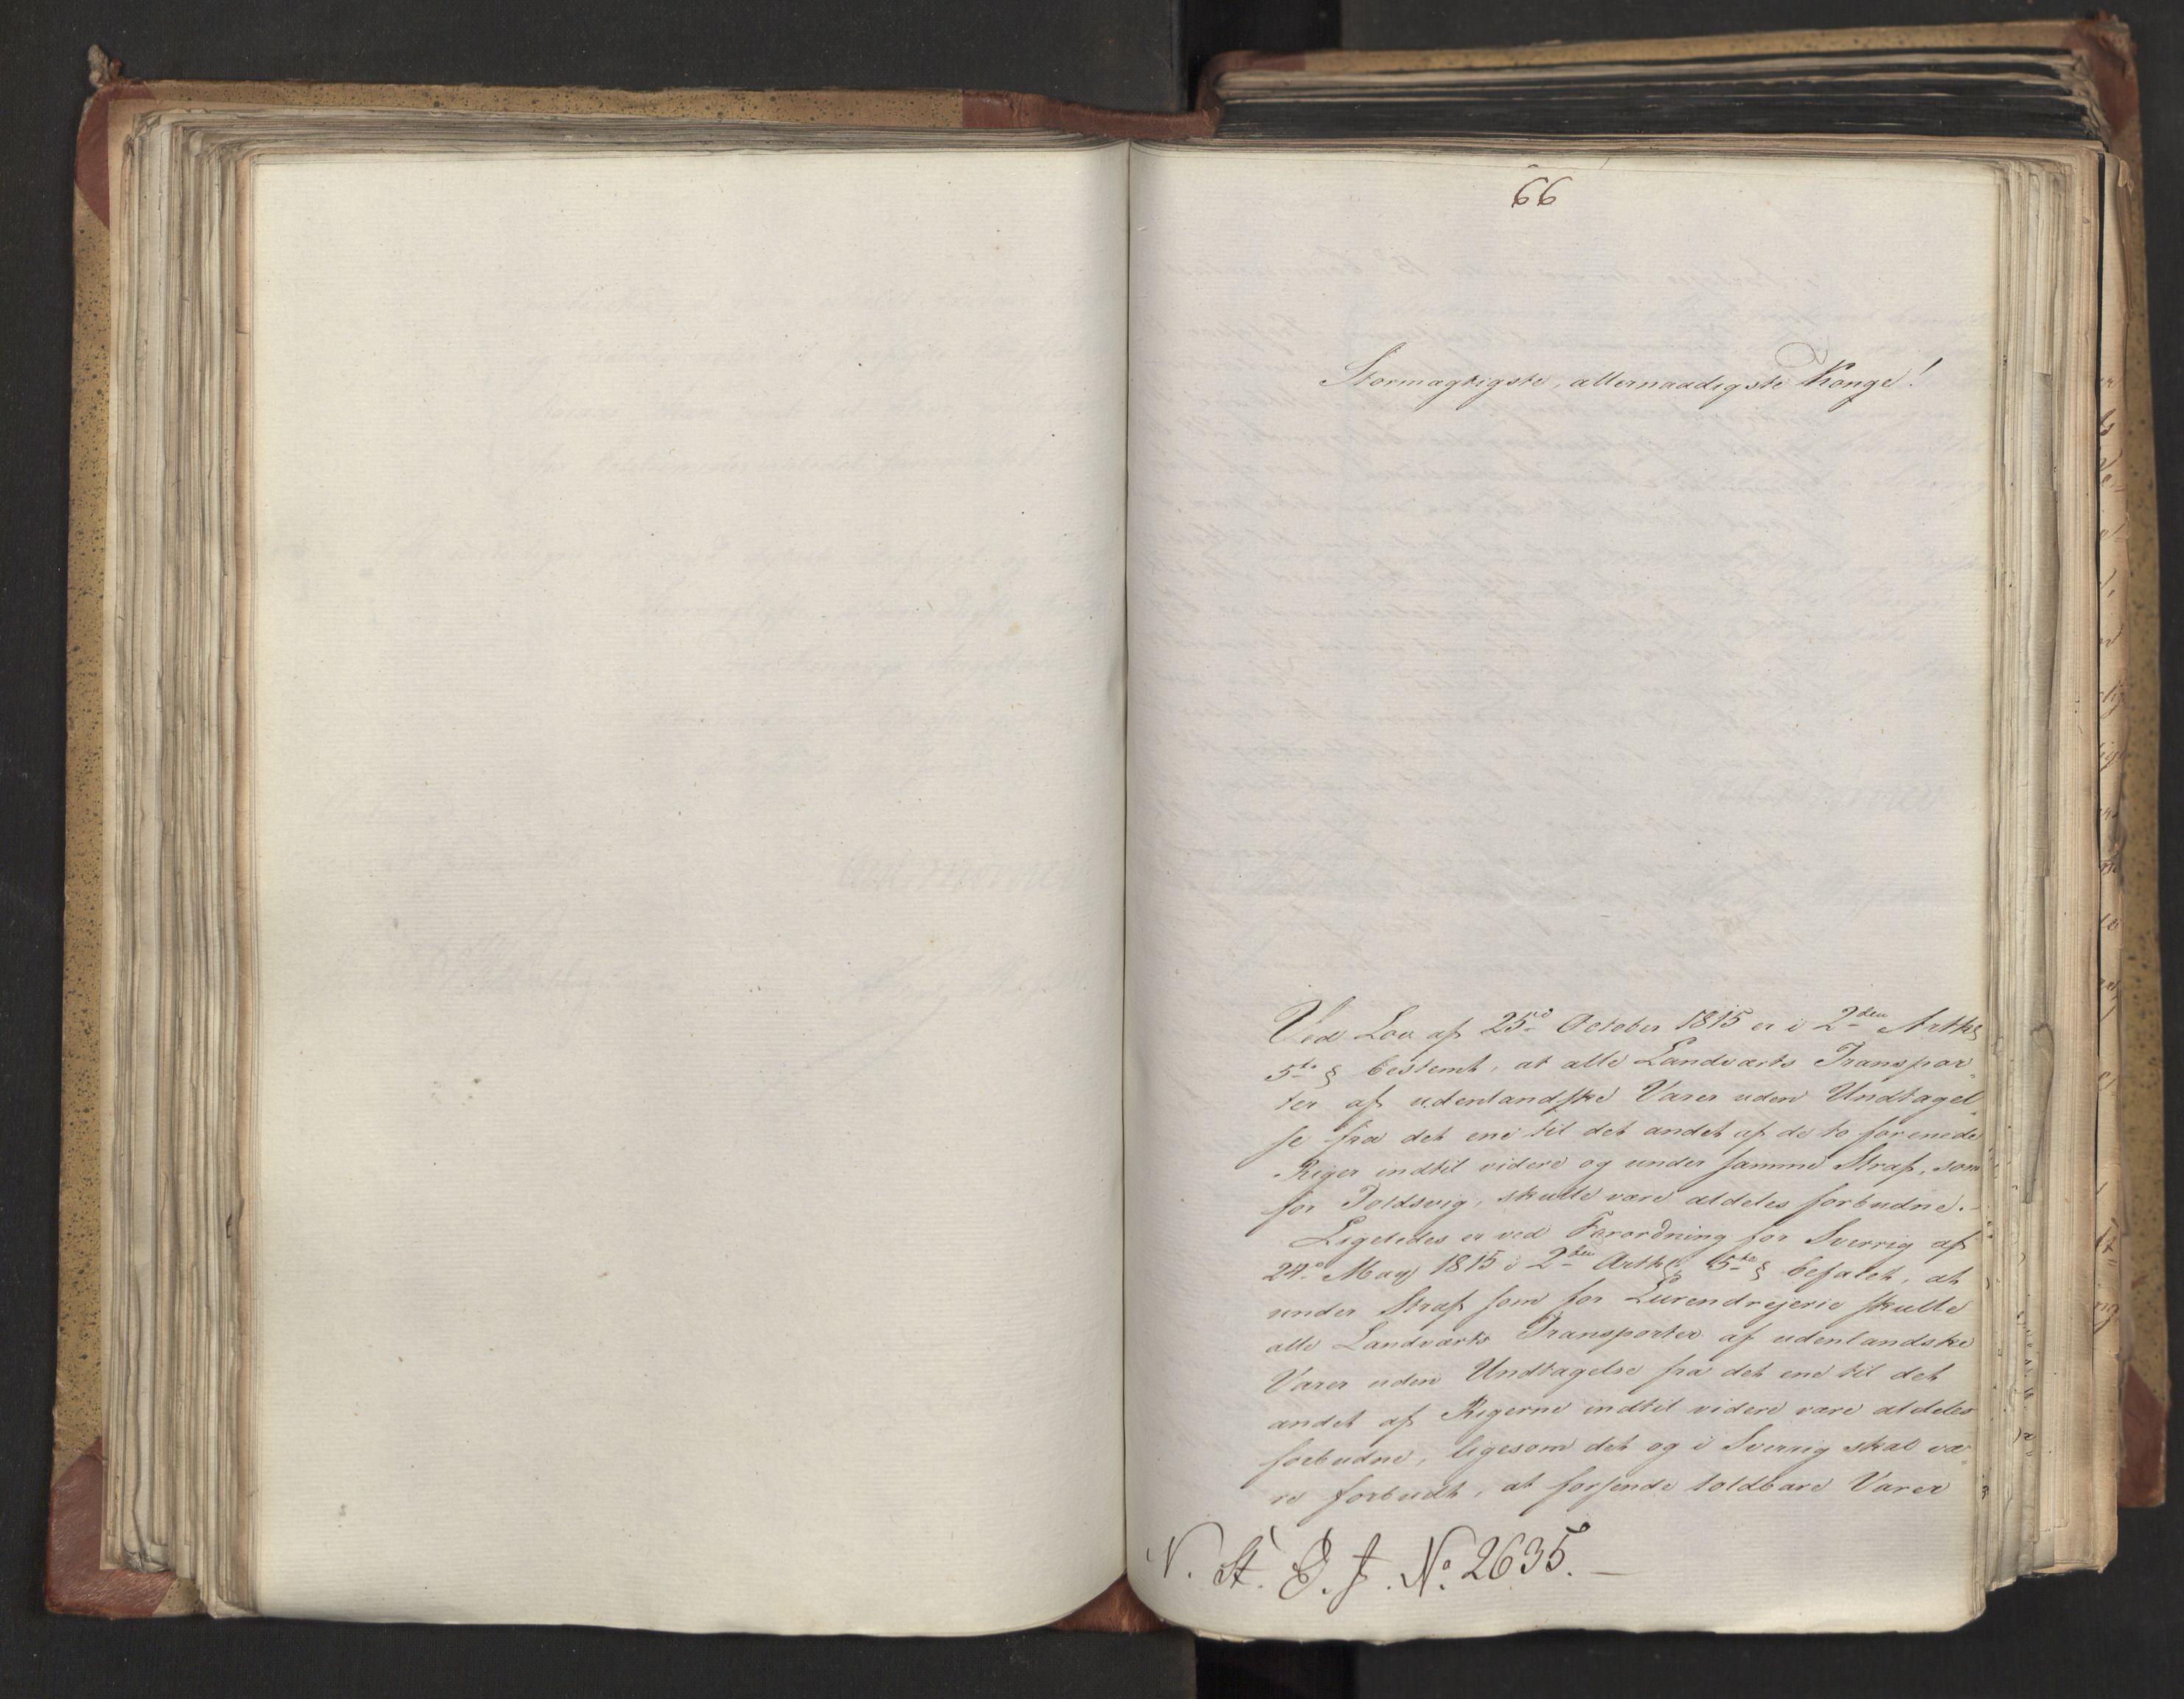 66
Stormægtigste, allernaadigste Konge!
Ved Lov af 25de October 1815 er i 2den Artks
5te § bestemt, at alle Landværts Transpor„
ter af udenlandske Varer uden Undtagel„
se fra det ene til det andet af de to forenede
Riger indtil videre og under samme Straf, som
for Toldsvig, skulle være aldeles forbudne.-
Ligeledes er ved Forordning for Sverrig af
24de May 1815 i 2den Artks 5te § befalet, at
under Straf som for Lurendrejerie skulle
alle Landværts Transporter af udenlandske
Varer uden Undtagelse fra det ene til det
andet af Rigerne indtil videre være aldeles
forbudne, ligesom det og i Sverrig skal væ„
re forbudt, at forsende toldbare Varer
N. St. E. J. No. 2635.-